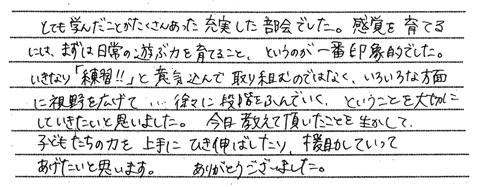 とても学んだことがたくさんあった充実した部会でした。感覚を育てる
には、まずは日常の遊ぶ力を育てること、というのが一番印象的でした。
いきなり「練習!!」と意気込んで取り組むのではなく、いろいろな方面
に視野を広げて…徐々に段階をふんでいく、ということを大切に
していきたいと思いました。今日教えて頂いたことを生かして、
子どもたちの力を上手にひき伸ばしたり、援助していって
あげたいと思います。ありがとうございました。